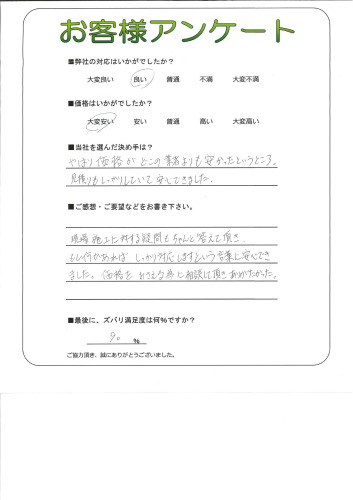 お客様アンケート
■弊社の対応はいかがでしたか？
大変良い 良い 普通 不満 大変不満
■価格はいかがでしたか？
大変安い 安い 普通 高い 大変高い
■当社を選んだ決め手は？
やはり価格がどこの業者よりも安かったというところ。
見積りもしっかりしていて安心できました。
■ご感想・ご要望などをお書き下さい。
現場施工に対する疑問もちゃんと答えて頂き、
もし何かあれば しっかり対応しますという言葉に安心でき
ました。価格をおさえる為に相談して頂きありがたかった。
■最後に、ズバリ満足度は何％ですか？
90 ％
ご協力頂き、誠にありがとうございました。